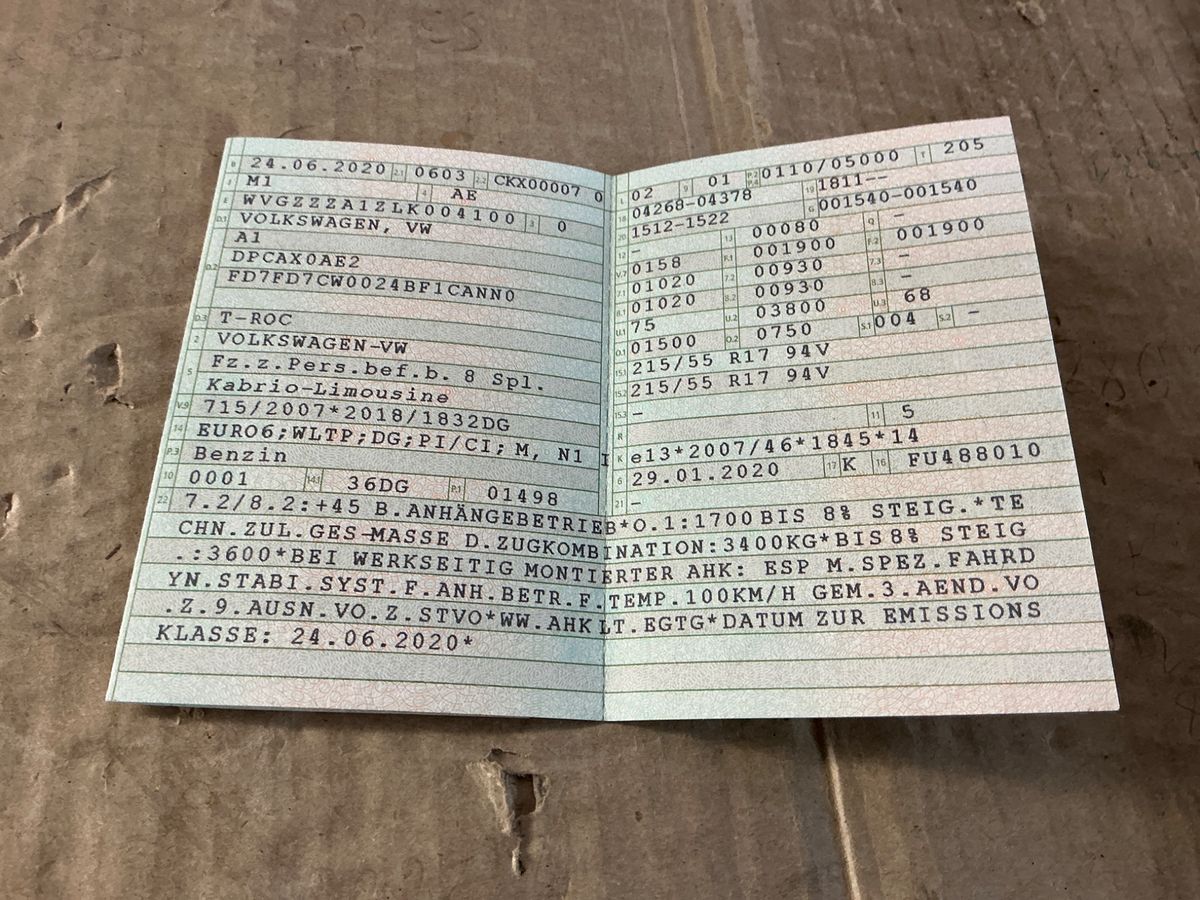 B 24.06.2020 2.1 0603 2.2 CKX00007 0
J M1 4 AE
E WVGZZZA1ZLK004100 3 0
D.1 VOLKSWAGEN, VW
A1
D.2 DPCAX0AE2
FD7FD7CW0024BF1CANN0
D.3 T-ROC
2 VOLKSWAGEN-VW
5 Fz.z.Pers.bef.b. 8 Spl.
Kabrio-Limousine
V.9 715/2007*2018/1832DG
14 EURO6;WLTP;DG;PI/CI; M, N1 I
P.3 Benzin
10 0001 14.1 36DG P.1 01498
L 02 9 01 P.2 P.4 0110/05000 T 205
18 04268-04378 19 1811--
20 1512-1522 G 001540-001540
12 - 13 00080 Q -
V.7 0158 F.1 001900 F.2 001900
7.1 01020 7.2 00930 7.3 -
8.1 01020 8.2 00930 8.3 -
U.1 75 U.2 03800 U.3 68
O.1 01500 O.2 0750 S.1 004 S.2 -
15.1 215/55 R17 94V
15.2 215/55 R17 94V
15.3 -
R 11 5
K e13*2007/46*1845*14
6 29.01.2020 17 K 16 FU488010
21 -
22 7.2/8.2:+45 B.ANHÄNGEBETRIEB*O.1:1700BIS 8% STEIG.*TE
CHN.ZUL.GES-MASSE D.ZUGKOMBINATION:3400KG*BIS8% STEIG
.:3600*BEI WERKSEITIG MONTIERTER AHK: ESP M.SPEZ.FAHRD
YN.STABI.SYST.F.ANH.BETR.F.TEMP.100KM/H GEM.3.AEND.VO
.Z.9.AUSN.VO.Z.STVO*WW.AHK LT.EGTG*DATUM ZUR EMISSIONS
KLASSE: 24.06.2020*